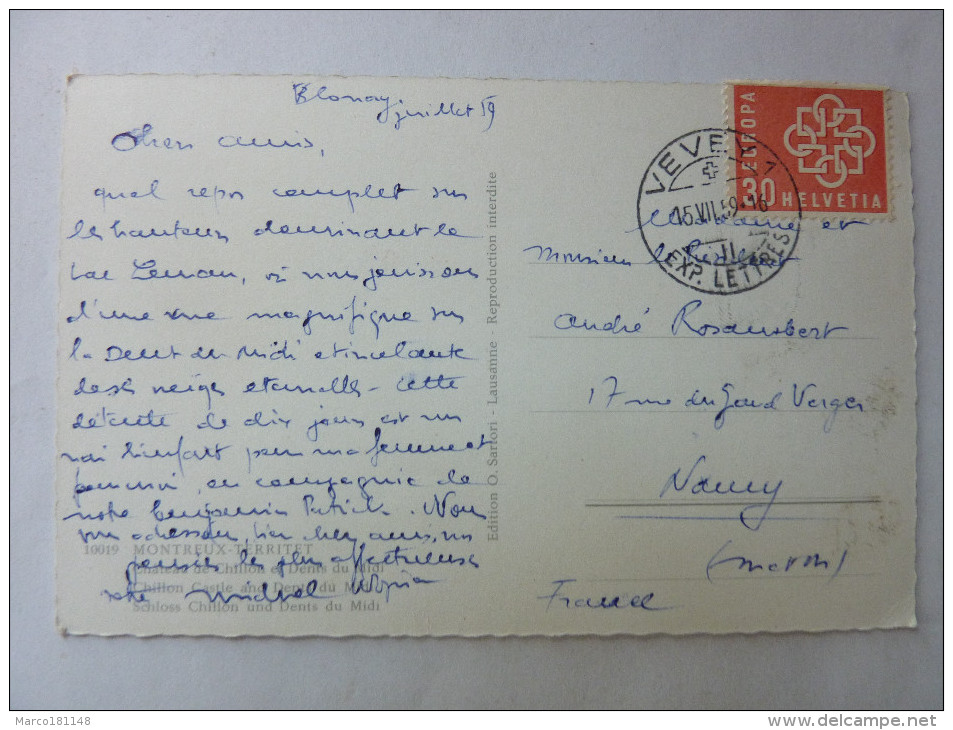 Blonay, juillet 59
Chers amis,
quel repos complet sur
les hauteurs dominant le
lac Léman, où nous jouissons
d'une vue magnifique sur
la Dent du Midi étincelante
de ses neiges éternelles - Cette
détente de dix jours est un
vrai bienfait pour ma femme et
pour moi, en compagnie de
notre benjamin Patrick. Nous
vous adressons, bien chers amis, nos
pensées les plus affectueuses
votre Michel
10019 MONTREUX-TERRITET
Château de Chillon et Dents du Midi
Chillon Castle and Dents du Midi
Schloss Chillon und Dents du Midi
Edition O. Sartori - Lausanne - Reproduction interdite
EUROPA
30 HELVETIA
VEVEY 1
15.VII.59-16
II
EXP. LETTRES
Madame et
Monsieur le Président
André Rosambert
17 rue du Grand Verger
Nancy
(M et M)
France
Marco181148
www.delcampe.net